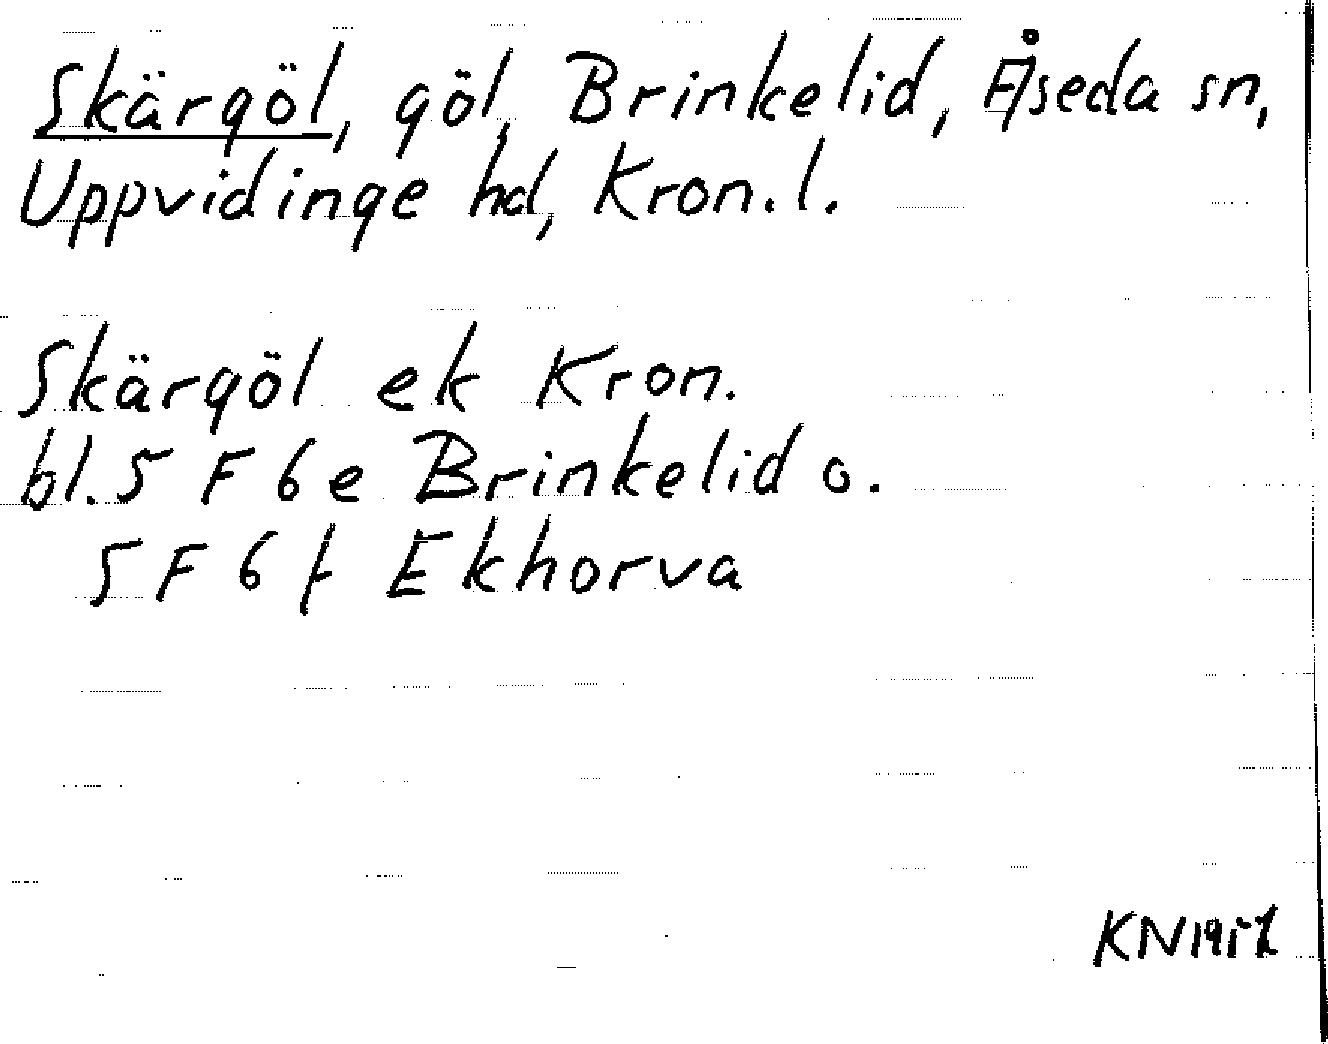 Skärgöl, göl, Brinkelid, Åseda sn,
Uppvidinge hd, Kron.l.
Skärgöl ek Kron.
bl. 5 F 6e Brinkelid o.
5 F 6 f Ekhorva
KN